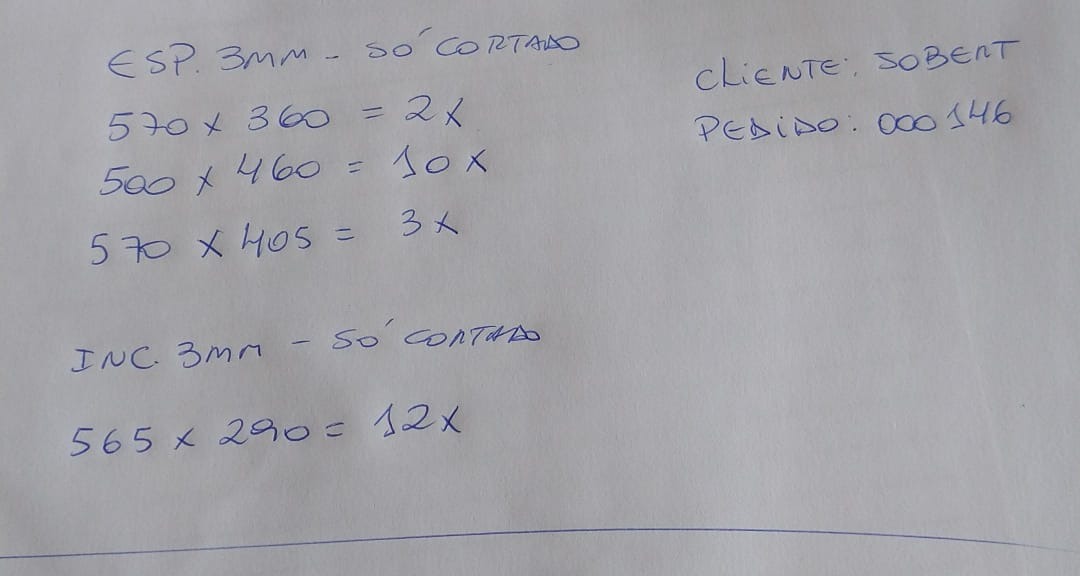 ESP. 3MM - SÓ CORTADO
570 x 360 = 2x
500 x 460 = 10x
570 x 405 = 3x
INC. 3MM - SÓ CORTADO
565 x 290 = 12x
CLIENTE: JOBERT
PEDIDO: 000146